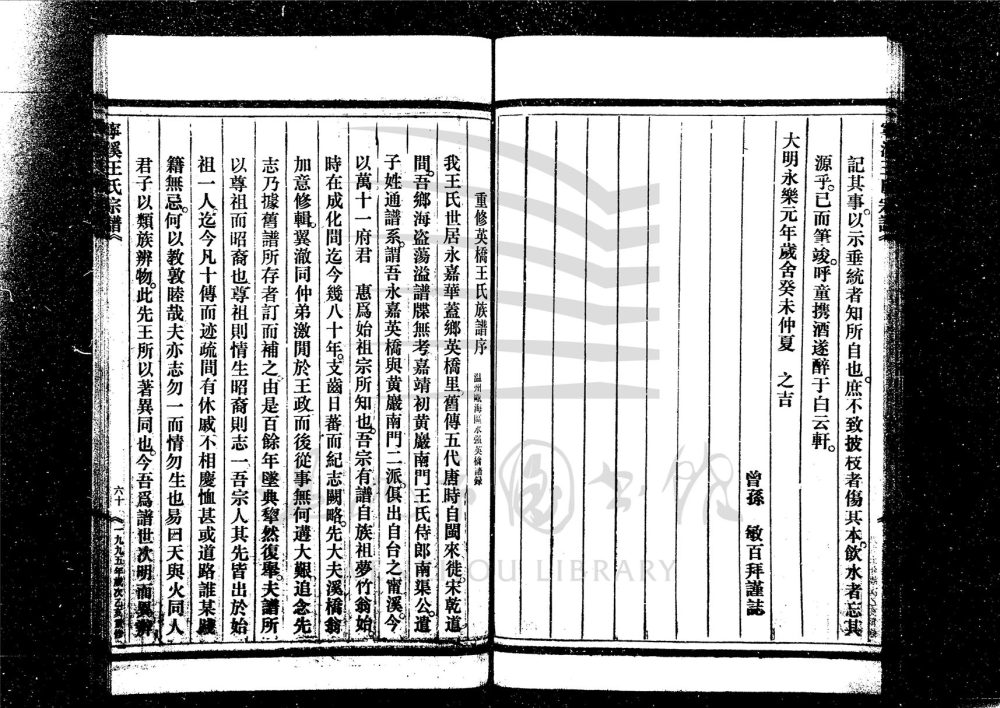 記其事以示垂統者知所自也。庶不致披枝者傷其本。飲水者忘其
源乎。已而筆竣。呼童携酒遂醉于白云軒。
大明永樂元年歲舍癸未仲夏 之吉
曾孫 敏百拜謹誌
重修英橋王氏族譜序 温州甌海區永强英橋譜録
我王氏世居永嘉華蓋鄉英橋里。舊傳五代唐時自閩來徙。宋乾道
間。吾鄉海盗蕩溢譜牒無考嘉靖初黄巖南門王氏侍郎南渠公。遣
子姓通譜系。謂吾永嘉英橋與黄巖南門二派。俱出自台之甯溪。今
以萬十一府君 惠爲始祖宗所知也。吾宗有譜自族祖夢竹翁始。
時在成化間迄今幾八十年。支齒日蕃而紀志闕略。先大夫溪橋翁
加意修輯。翼澈同仲弟激閒於王政而後從事無何遘大艱。追念先
志乃據舊譜所存者訂而補之由是百餘年墜典犂然復舉。夫譜所
以尊祖而昭裔也尊祖則情生昭裔則志一吾宗人其先皆出於始
祖一人迄今凡十傳而迹疏間有休戚不相慶恤甚或道路誰某賤
籍無忌。何以教敦睦哉夫亦志勿一而情勿生也易曰天與火同人
君子以類族辨物。此先王所以著異同也。今吾爲譜世次明而異辨
寧溪王氏宗譜
六十
一九九五年歲次乙亥重修
LIBRARY